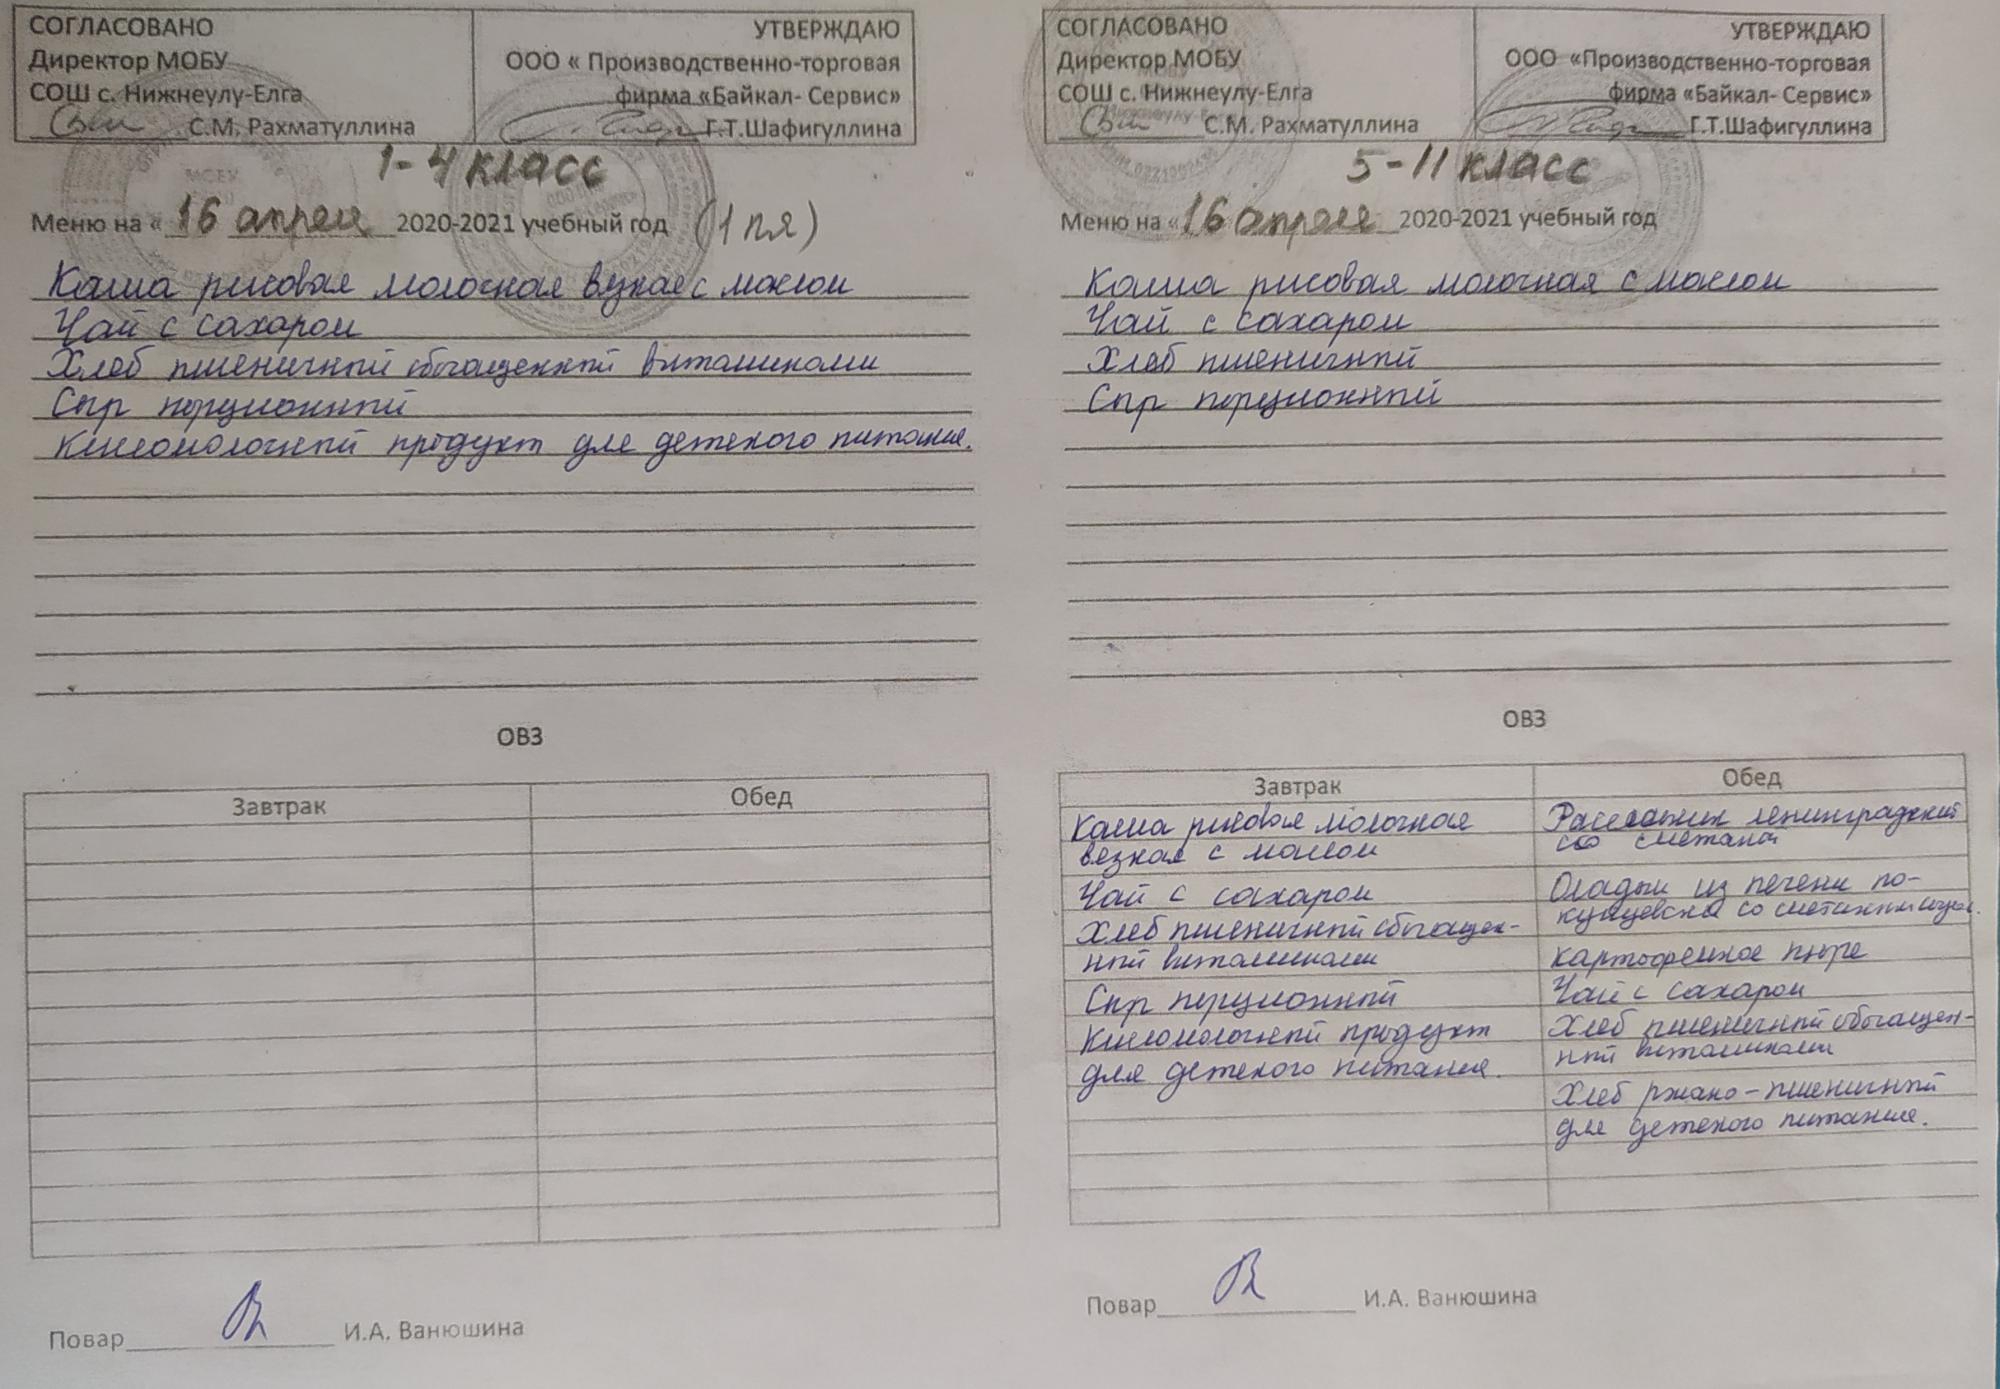 СОГЛАСОВАНО
Директор МОБУ
СОШ с. Нижнеулу-Елга
С.М. Рахматуллина
УТВЕРЖДАЮ
ООО « Производственно-торговая
фирма «Байкал- Сервис»
Г.Т.Шафигуллина
1-4 класс
Меню на « 16 апреля 2020-2021 учебный год (1 пя)
Каша рисовая молочная вязкая с маслом
Чай с сахаром
Хлеб пшеничный обогащенный витаминами
Сыр порционный
Кисломолочный продукт для детского питания.
ОВЗ
Завтрак Обед
Повар И.А. Ванюшина
СОГЛАСОВАНО
Директор МОБУ
СОШ с. Нижнеулу-Елга
С.М. Рахматуллина
УТВЕРЖДАЮ
ООО «Производственно-торговая
фирма «Байкал- Сервис»
Г.Т.Шафигуллина
5-11 класс
Меню на «16 апреля 2020-2021 учебный год
Каша рисовая молочная с маслом
Чай с сахаром
Хлеб пшеничный
Сыр порционный
ОВЗ
Завтрак
Каша рисовая молочная
вязкая с маслом
Чай с сахаром
Хлеб пшеничный обогащен-
ный витаминами
Сыр порционный
Кисломолочный продукт
для детского питания.
Обед
Рассольник ленинградский
со сметаной
Оладьи из печени по-
кунцевски со сметанным
картофельное пюре
Чай с сахаром
Хлеб пшеничный обогащен-
ный витаминами
Хлеб ржано-пшеничный
для детского питания.
Повар И.А. Ванюшина